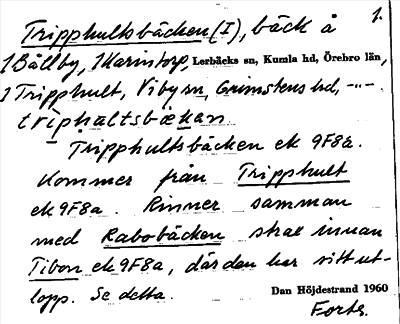 1.
Tripphultsbäcken (I), bäck å
1 Bällby, 1 Karintorp, Lerbäcks sn, Kumla hd, Örebro län,
1 Tripphult, Viby sn, Grimstens hd, -"-.
tríphaltsbækan
Tripphultsbäcken ek 9F8a.
Kommer från Tripphult
ek 9F8a. Rinner samman
med Rabobäcken strax innan
Tibon ek 9F8a, där den har sitt ut-
lopp. Se detta.
Dan Höjdestrand 1960
Forts.